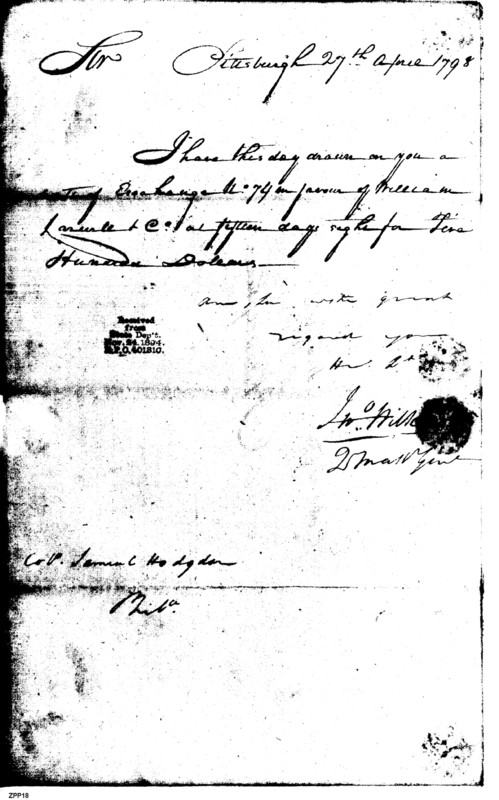 Sir Pittsburgh 27th April 1798
I have this day drawn on you a
of Exchange No 74 in favour of William
& Co. at fifteen days sight for
Hundred Dollars
am, Sir with great
regard your
Jno Wilk
Received
from
State Dep't.
Nov. 24. 1894.
R.P.O. 401810.
Col. Samuel Hodgdon
Phila
ZPP18